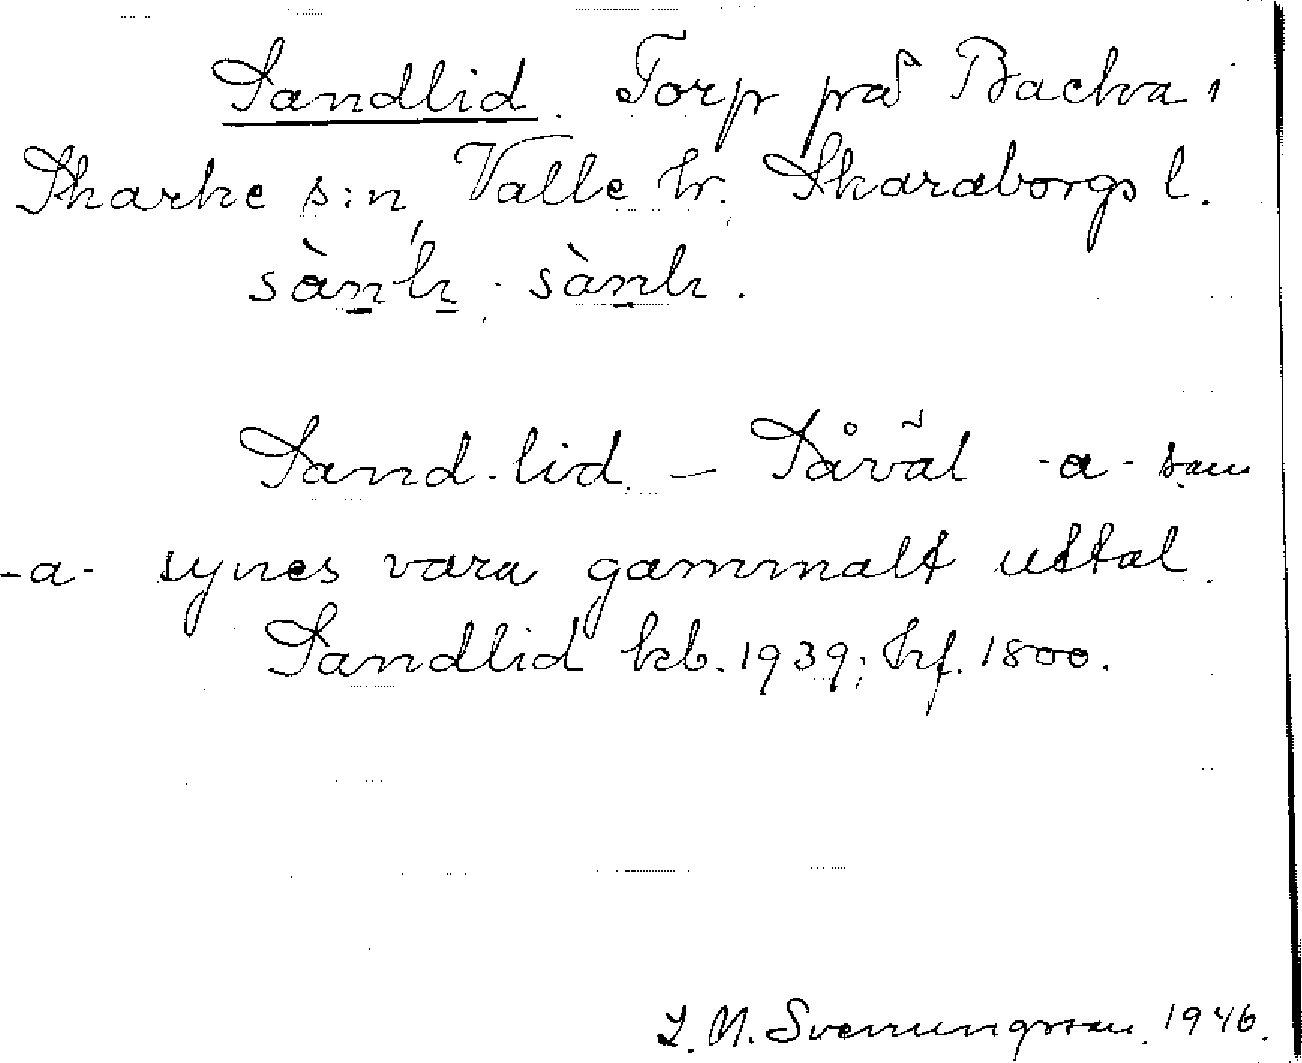 Sandlid. Torp på Backa i
Skarke s:n, Valle hr. Skaraborgs l.
sànlı . sànlı .
Sand-lid. – Såväl -a- som
-a- synes vara gammalt uttal.
Sandlid kb. 1939; hf. 1800.
L. M. Svenungsson. 1946.